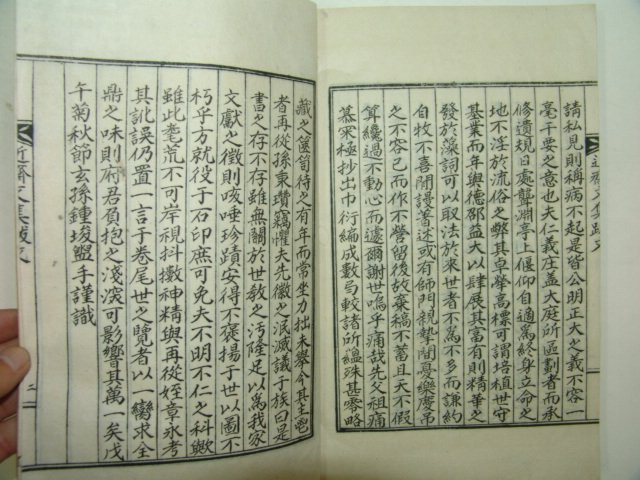 請私見則稱病不起是皆公明正大之義不容一
毫干要之意也夫仁義庄盖大庭所區劃者而承
修遺規日處聾淵亭上偃仰自適爲終身立命之
地不淫於流俗之弊其卓犖高標可謂培植世守
基業而年與德邵益大以肆展其富有則精華之
發於藻詞可以取法於來世者不爲不多而謙約
自牧不喜閒謾著述或有師門親摯間㤙樂慶吊
之不容已而作不營留後放棄稿不蓄且天不假
算纔過不動心而遽爾謝世嗚乎痛哉先父祖痛
慕罙極抄出巾衍編成數弓較諸所縕珠甚零略
藏之篋笥待之有年而常坐力拙未擧今其主鬯
者再從孫東瓚竊懼夫先徽之泯滅議于族曰是
書之存不存雖無關於世敎之汚隆足以爲我家
文獻之徵則咳唾珍蹟安得不褒揚于世以圖不
朽乎方就役于石印庶可免夫不明不仁之科歟
雖此耄荒不可岸視抖擻神精與再從姪章永考
其訛誤仍置一言于卷尾世之覽者以一臠求全
鼎之味則府君負抱之淺深可影響其萬一矣戊
午菊秋節玄孫鍾埈盥手謹識
近齋文集跋文
二